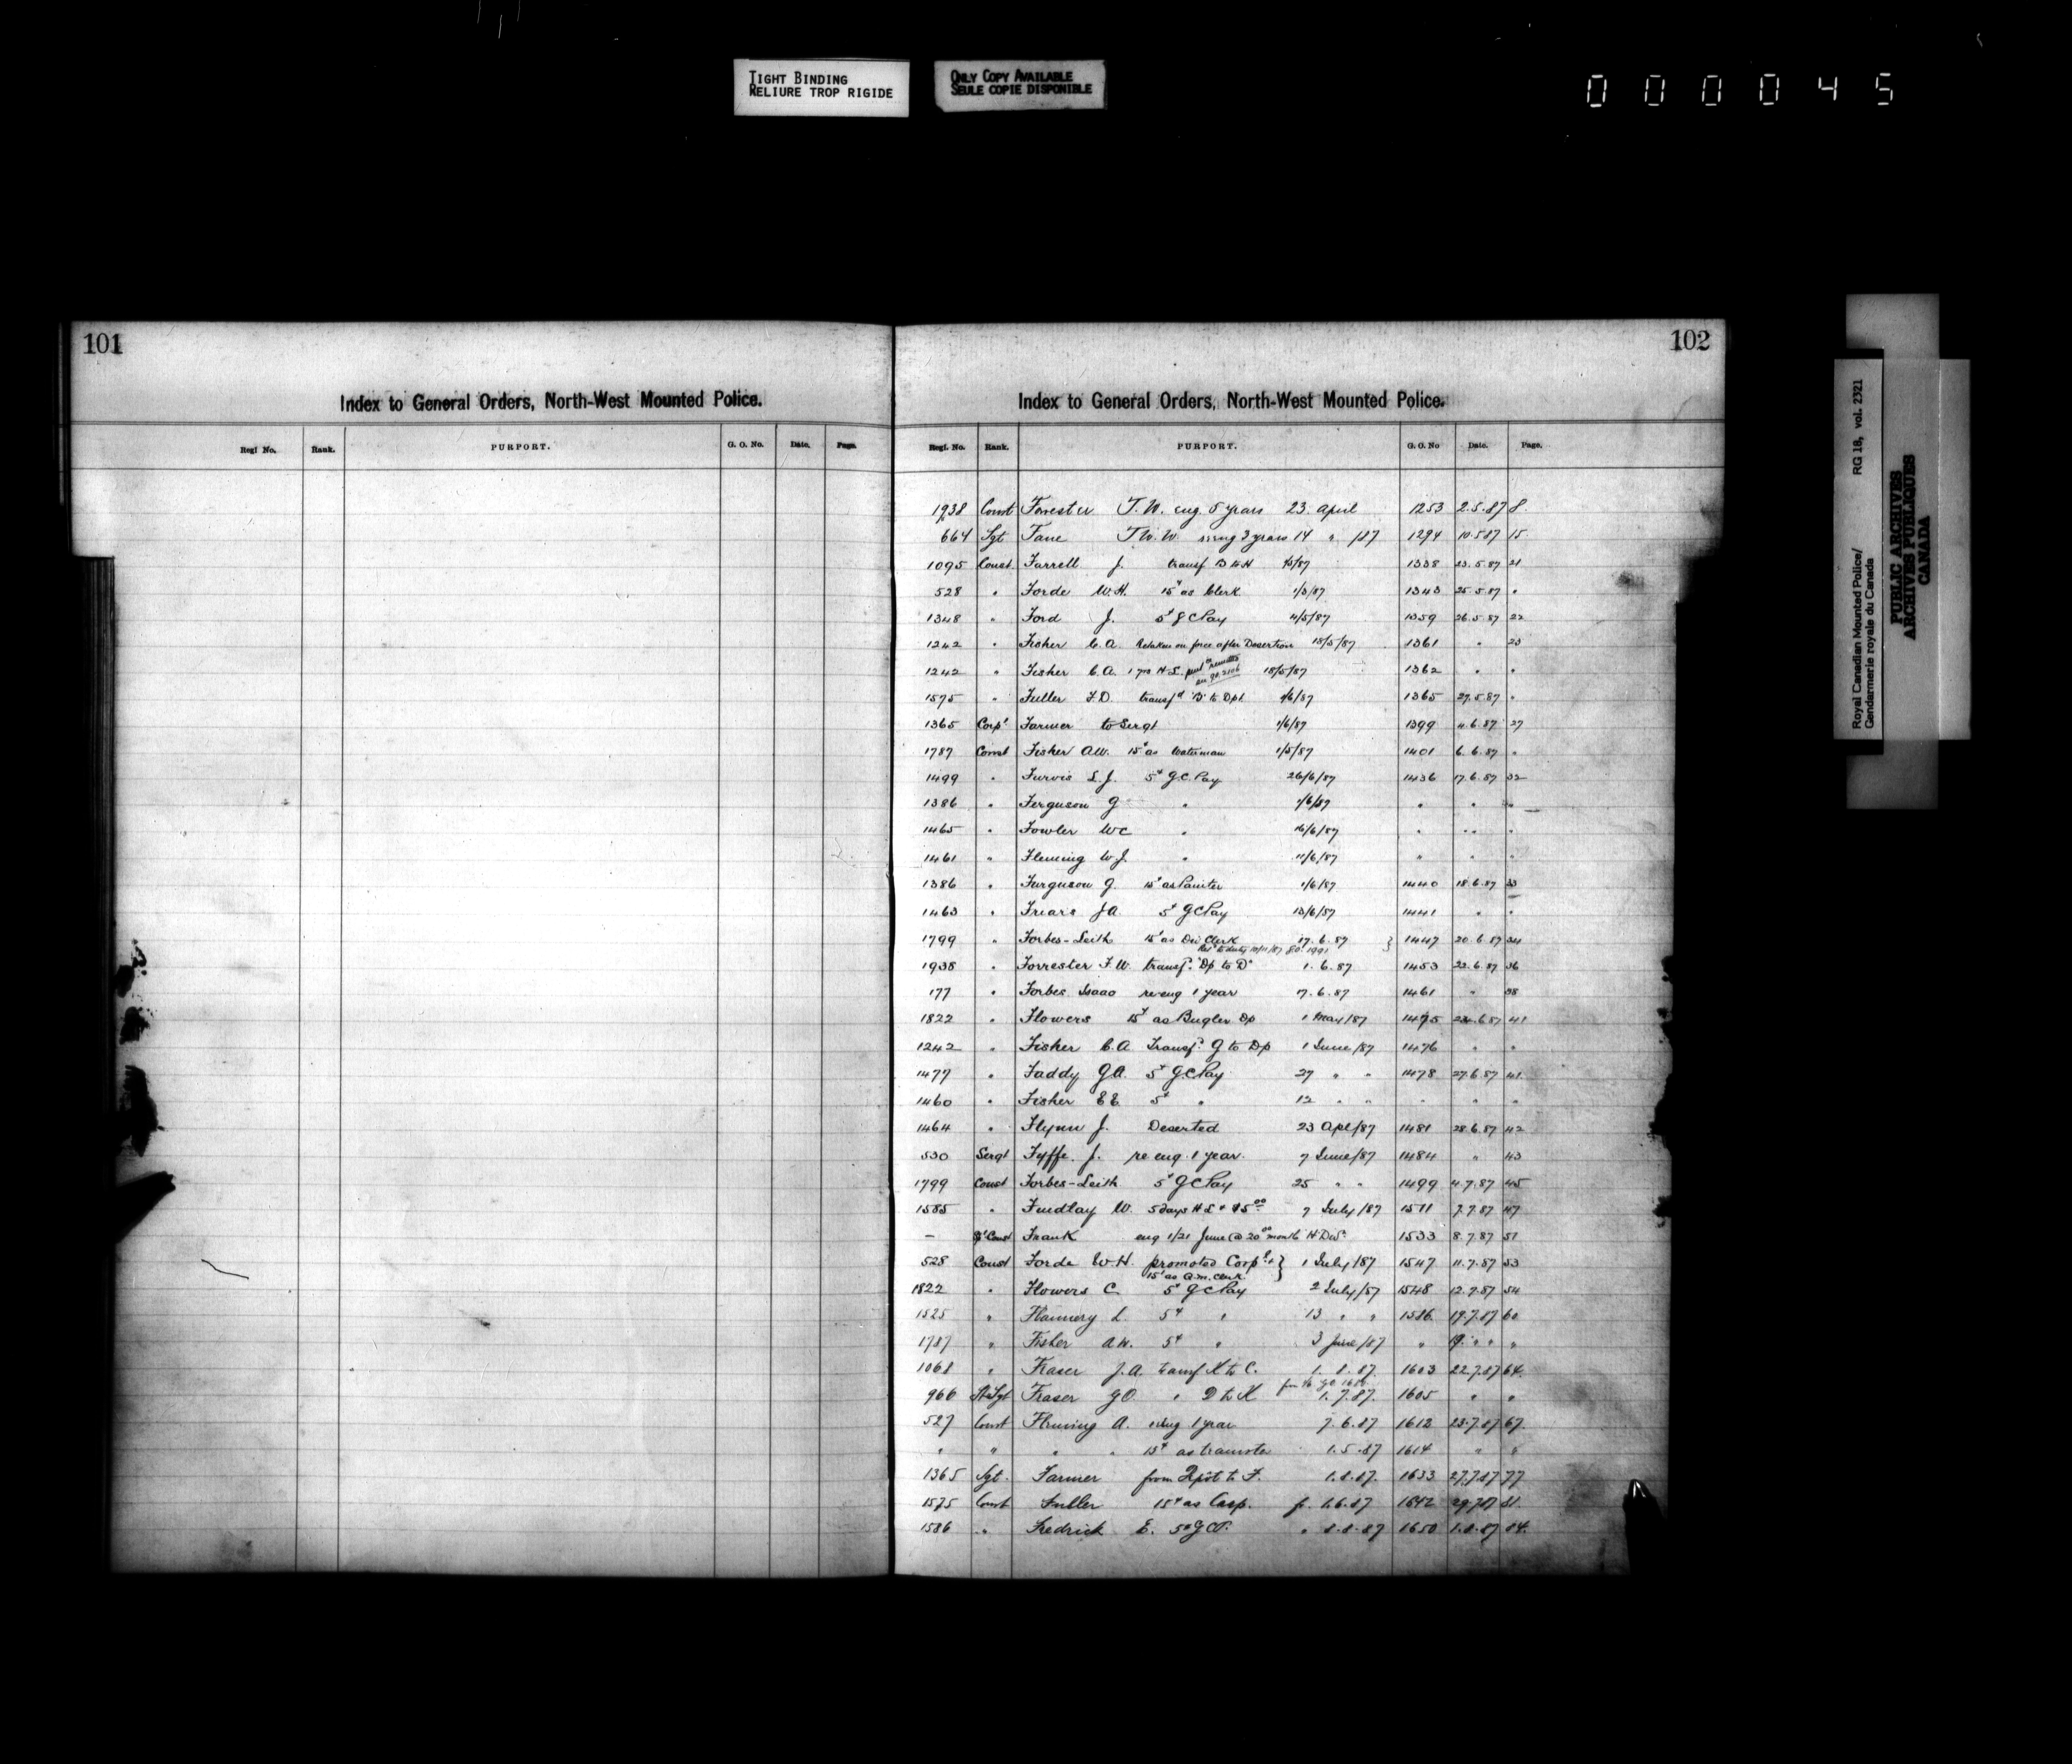 TIGHT BINDING
RELIURE TROP RIGIDE
ONLY COPY AVAILABLE
SEULE COPIE DISPONIBLE
000045
101
Index to General Orders, North-West Mounted Police.
Regl No. Rank. PURPORT. G. O. No. Date. Page.
102
Index to General Orders, North-West Mounted Police.
Regl. No. Rank. PURPORT. G. O. No Date. Page.
1938 Const Forrester T. W. eng. 5 years 23 April 1253 2.5.87 8
664 Sgt Fane 3 years 14 " /87 1294 10.5.87 15
1095 Const. Farrell J. transf 1338 23.5.87 21
528 " Forde W. H. 15¢ as Clerk 1/3/87 1343 25.5.87 "
1348 " Ford J. 5¢ G C Pay 4/5/87 1359 26.5.87 22
1242 " Fisher C. A. Retaken on force after Desertion 18/5/87 1361 " 23
1242 " Fisher C. A. 18/5/87 1362 " "
1575 " Fuller F. D. transfd "B" to Dpt 1/6/87 1365 27.5.87 "
1365 Corpl Farmer to Sergt 1/6/87 1399 4.6.87 27
1787 Const Fisher A.W. 15¢ as Waterman 1/5/87 1401 6.6.87 "
1499 " S. J. 5¢ G.C. Pay 26/6/87 1436 17.6.87 32
1386 " Ferguson G " 1/6/87 " " "
1465 " Fowler W C " 16/6/87 " " "
1461 " Fleming W. J. " 11/6/87 " " "
1386 " Ferguson G. 15¢ as Painter 1/6/87 1440 18.6.87 33
1463 " Friars J A 5¢ G C Pay 13/6/87 1441 " "
1799 " Forbes-Leith 15¢ as Div Clerk 17.6.87 } 1447 20.6.87 34
to duty 10/11/87 G.O. 1991
1938 " Forrester F. W. transf. "Dp to D" 1.6.87 1453 22.6.87 36
177 " Forbes Isaac re-eng 1 year 17.6.87 1461 " 38
1822 " Flowers 15¢ as Bugler Dp 1 May/87 1475 6.87 41
1242 " Fisher C. A Transf. G to Dp 1 June/87 1476 " "
1477 " Faddy G A. 5¢ G C Pay 27 " " 1478 27.6.87 41
1460 " Fisher E E. 5¢ " 12 " " " " "
1464 " Flynn J. Deserted 23 Apl/87 1481 28.6.87 42
530 Sergt Fyffe. J. re eng. 1 year. 7 June/87 1484 " 43
1799 Const Forbes-Leith 5¢ G C Pay 25 " " 1499 4.7.87 45
1585 " Findlay W. 5 days H L & $5.00 7 July/87 1511 7.7.87 47
— Frank eng 1/21 June @ 20.00 month H. Div. 1533 8.7.87 51
528 Const Forde W. H. promoted Corpl & } 1 July/87 1547 11.7.87 53
15¢ as Q.M. Clerk }
1822 " Flowers C 5¢ G C Pay 2 July/87 1548 12.7.87 54
1525 " Flannery L 5¢ " 13 " " 1586 19.7.87 60
1787 " Fisher A. W. 5¢ " 3 June/87 " 19. " " "
1068 " Fraser J. A. transf K to C. 1.8.87. 1603 22.7.87 64.
966 Fraser G O " D to K 1.7.87. 1605 " "
527 Const Fleming A. 1 year 7.6.87 1612 23.7.87 67.
" " " " 15¢ as teamster 1.5.87 1614 " "
1365 Sgt. Farmer from Depot to F. 1.8.87. 1633 27.7.87 77
1575 Const Fuller 15¢ as Carp. fr. 1.6.87 1642 29.7.87 81.
1586 " Fredrick E. 5¢ G C P. " 8.8.87 1650 1.8.87 84.
Royal Canadian Mounted Police/
Gendarmerie royale du Canada
RG 18, vol. 2321
PUBLIC ARCHIVES
ARCHIVES PUBLIQUES
CANADA